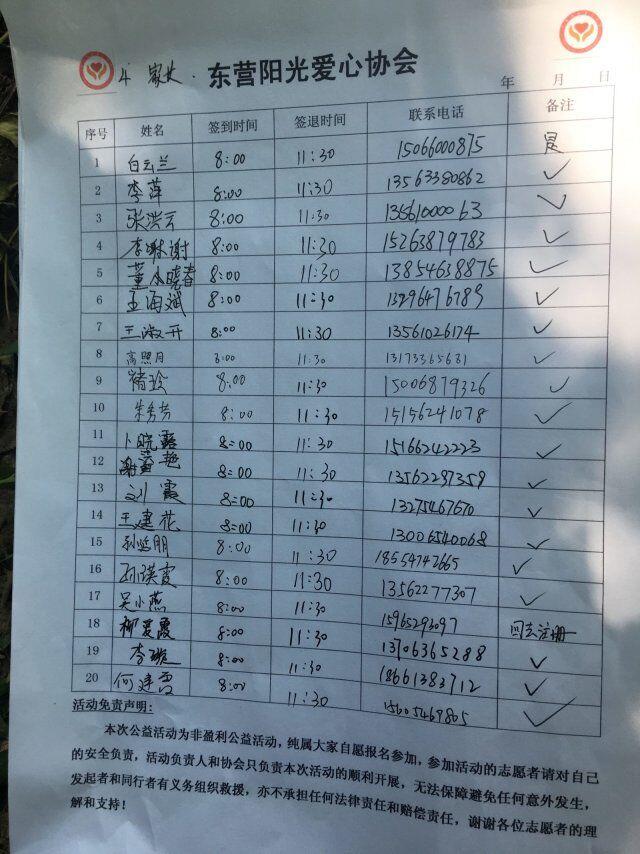 4 家长. 东营阳光爱心协会
年 月 日
序号 姓名 签到时间 签退时间 联系电话 备注
1 白云兰 8:00 11:30 15066000875 是
2 李萍 8:00 11:30 13563380862 ✓
3 张洪云 8:00 11:30 13561000063 ✓
4 李琳谢 8:00 11:30 15263879783 ✓
5 董晓春 8:00 11:30 13854638875 ✓
6 孟海斌 8:00 11:30 ✓
7 王淑开 8:00 11:30 13561026174 ✓
8 高照月 8:00 11:30 13173365631 ✓
9 褚玲 8:00 11:30 15006879326 ✓
10 朱秀芳 8:00 11:30 15156241078 ✓
11 卜晓露 8:00 11:30 15166242223 ✓
12 艳 8:00 11:30 13562297359 ✓
13 刘霞 8:00 11:30 13275467670 ✓
14 王建花 8:00 11:30 13006540068 ✓
15 8:00 11:30 18554742665 ✓
16 孙瑛霞 8:00 11:30 13562277307 ✓
17 吴小燕 8:00 11:30 15965293097 回去注册
18 柳爱霞 8:00 11:30 13706365288 ✓
19 李璇 8:00 11:30 18661383712 ✓
20 何建雪 8:00 11:30 15605469805 ✓
活动免责声明:
本次公益活动为非盈利公益活动，纯属大家自愿报名参加，参加活动的志愿者请对自己
的安全负责，活动负责人和协会只负责本次活动的顺利开展，无法保障避免任何意外发生，
发起者和同行者有义务组织救援，亦不承担任何法律责任和赔偿责任，谢谢各位志愿者的理
解和支持！